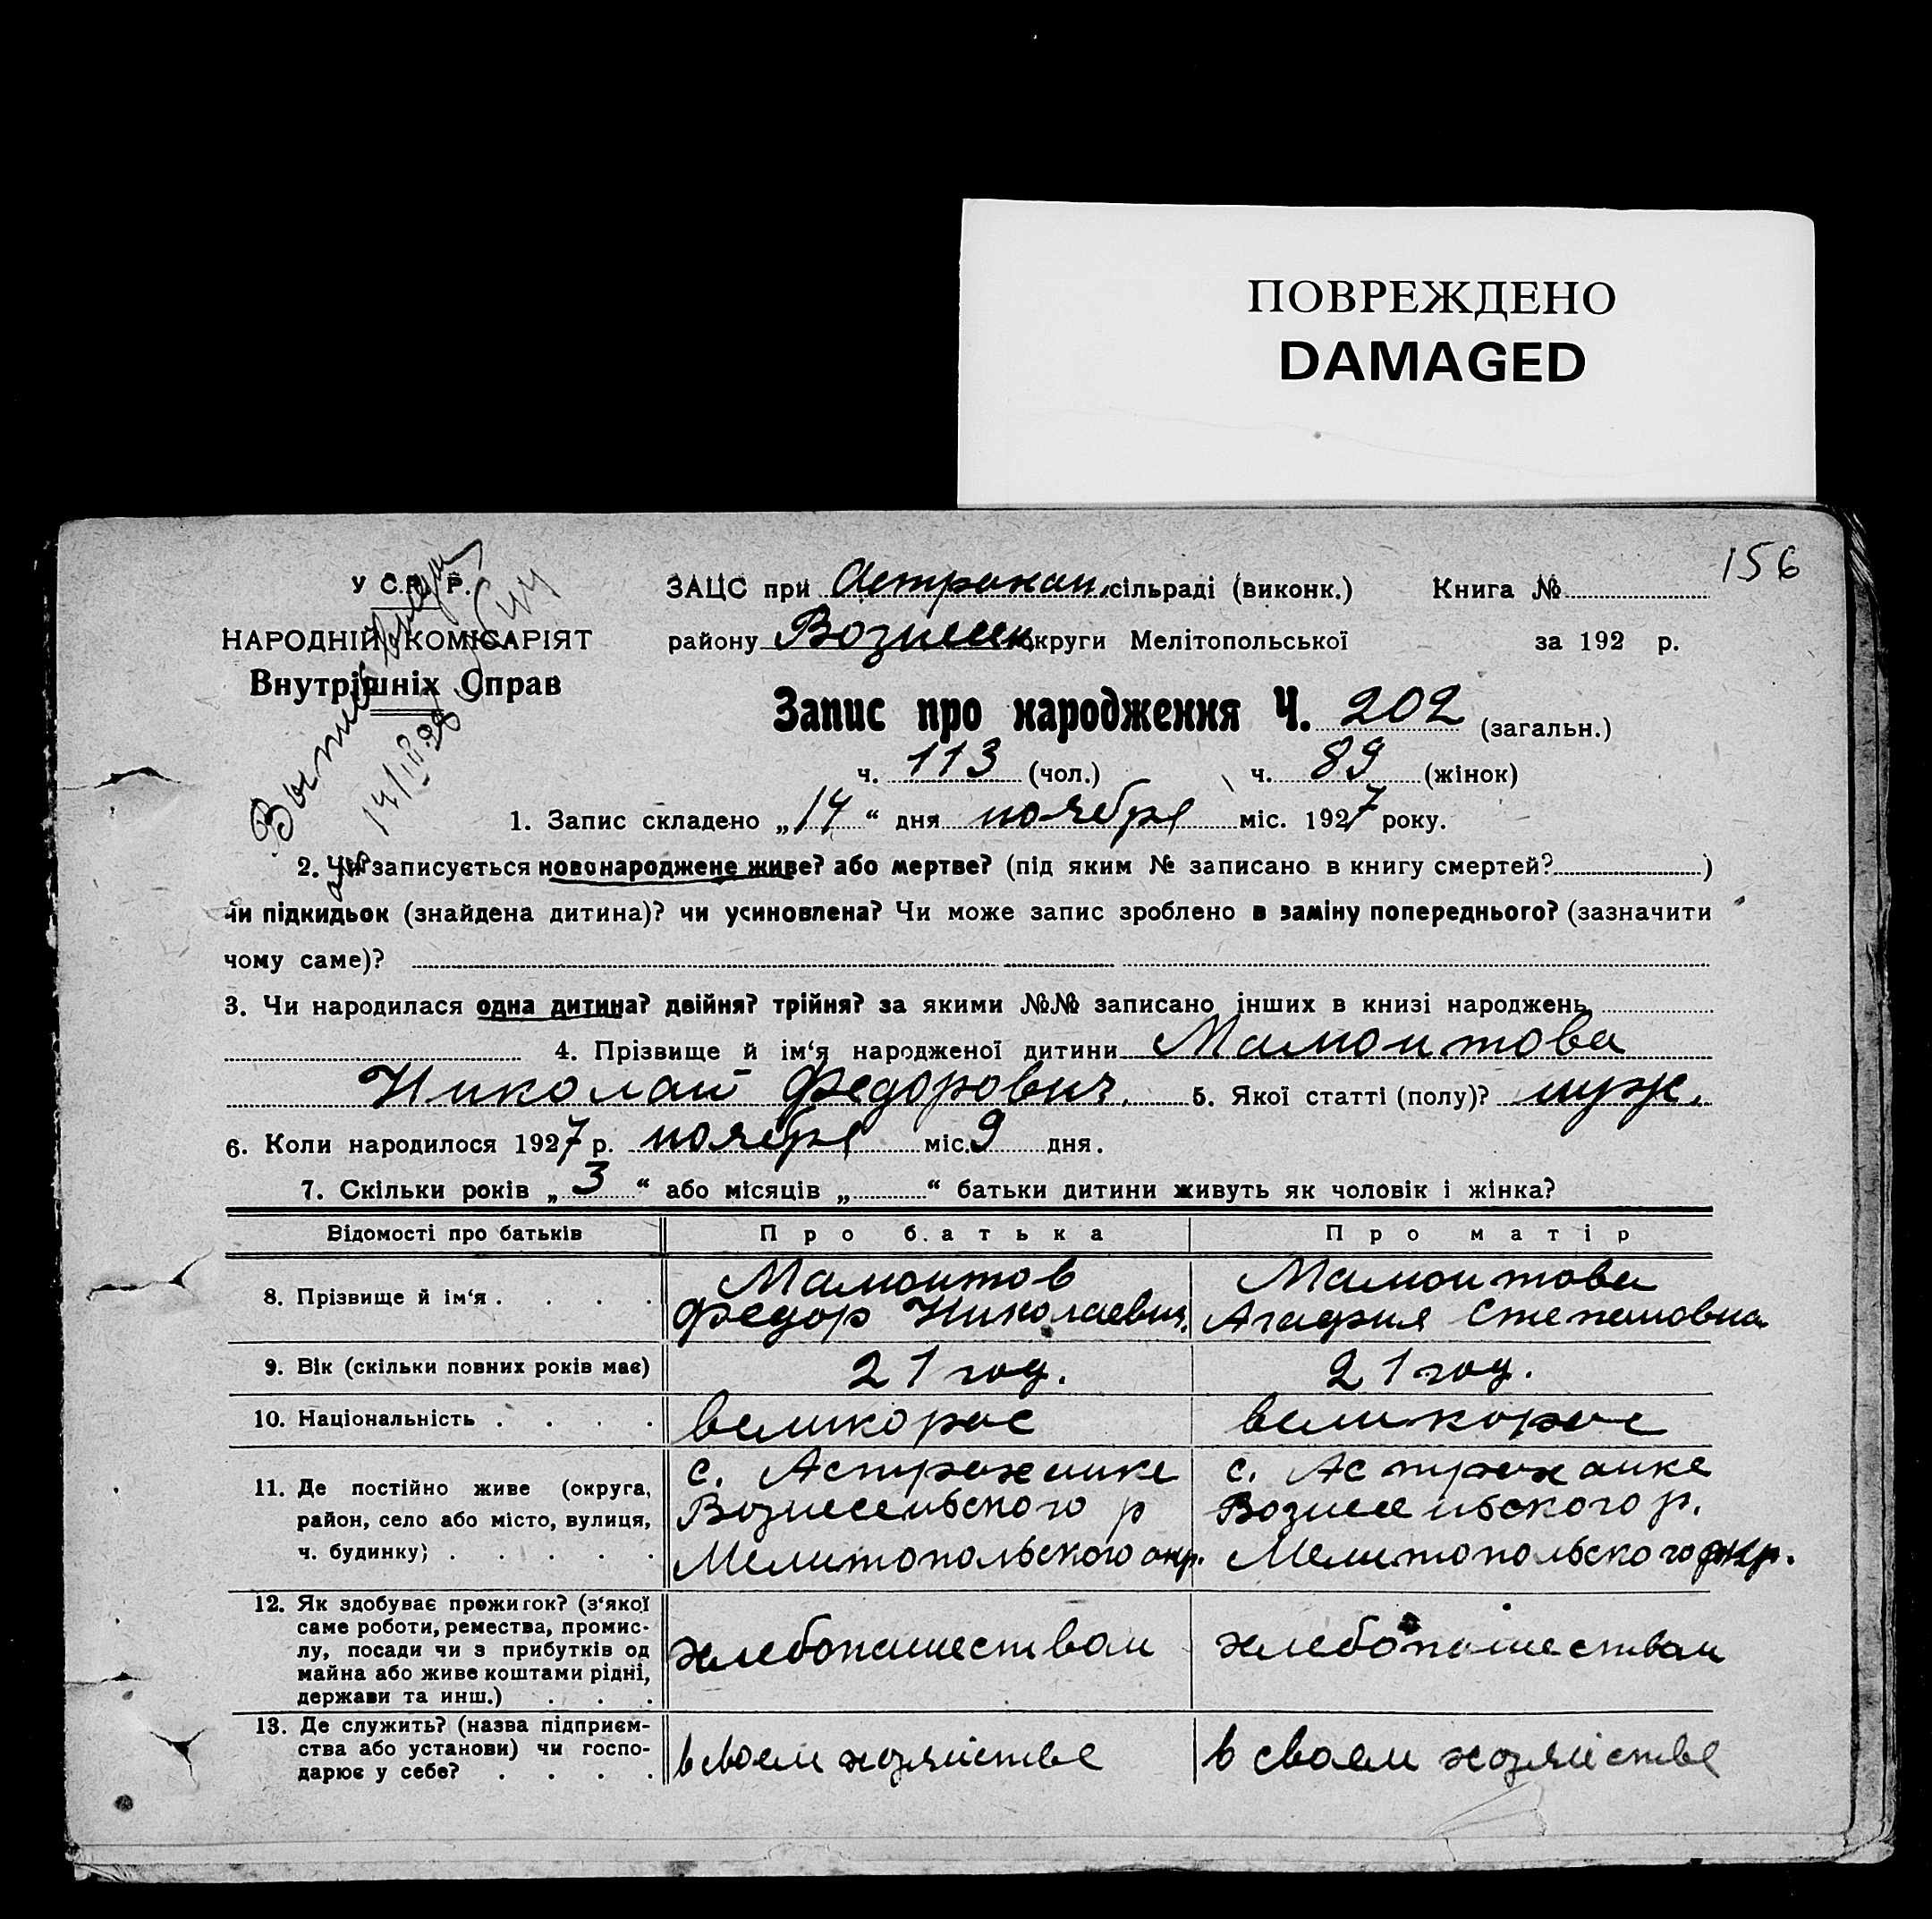 ПОВРЕЖДЕНО
DAMAGED
156
У С.Р.Р.
НАРОДНІЙ КОМІСАРІЯТ
Внутрішніх Справ
ЗАЦС при Астрахан. сільраді (виконк.) Книга №
району Вознесен. округи Мелітопольської за 192 р.
Запис про народження Ч. 202 (загальн.)
ч. 113 (чол.) ч. 89 (жінок)
1. Запис складено „14“ дня ноября міс. 1927 року.
2. Чи записується новонароджене живе? або мертве? (під яким № записано в книгу смертей? )
чи підкидьок (знайдена дитина)? чи усиновлена? Чи може запис зроблено в заміну попереднього? (зазначити
чому саме)?
3. Чи народилася одна дитина? двійня? трійня? за якими №№ записано інших в книзі народжень
4. Прізвище й ім‘я народженої дитини Мамонтова
Николай Федорович. 5. Якої статті (полу)? муж.
6. Коли народилося 1927 р. ноября міс. 9 дня.
7. Скільки років „3“ або місяців „ “ батьки дитини живуть як чоловік і жінка?
Відомості про батьків Про батька Про матір
8. Прізвище й ім‘я . . . . Мамонтов Мамонтова
Федор Николаевич. Агафия Степановна
9. Вік (скільки повних років має) 21 год. 21 год.
10. Національність . . . . великорос великорос
11. Де постійно живе (округа, с. Астраханке с. Астраханке
район, село або місто, вулиця, Вознесенського р Вознесенського р.
ч. будинку) . . . . . Мелитопольского окр. Мелитопольского окр.
12. Як здобуває прожиток? (з‘якої
саме роботи, ремества, промис-
лу, посади чи з прибутків од хлебопашеством хлебопашеством
майна або живе коштами рідні,
держави та инш.) . . .
13. Де служить? (назва підприєм-
ства або установи) чи госпо- в своем хозяйстве в своем хозяйстве
дарює у себе? . . . .